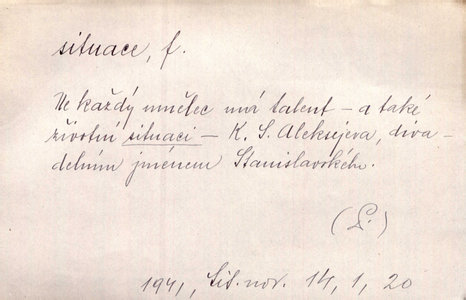 situace, f.
Ne každý umělec má talent – a také
životní situaci – K. S. Aleksejeva, diva-
delním jménem Stanislavského.
(L.)
1941, Lit. nov. 14, 1, 20